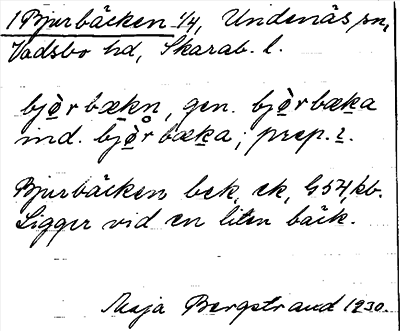 1 Bjurbäcken 1/4, Undenäs sn,
Vadsbo hd, Skarab. l.
bjə̀rbækn, gen. bjə̀rbæka
ind. bjə̀rbæka; prep. i.
Bjurbäcken bek, ek, G54, kb.
Ligger vid en liten bäck.
Maja Bergstrand 1930.